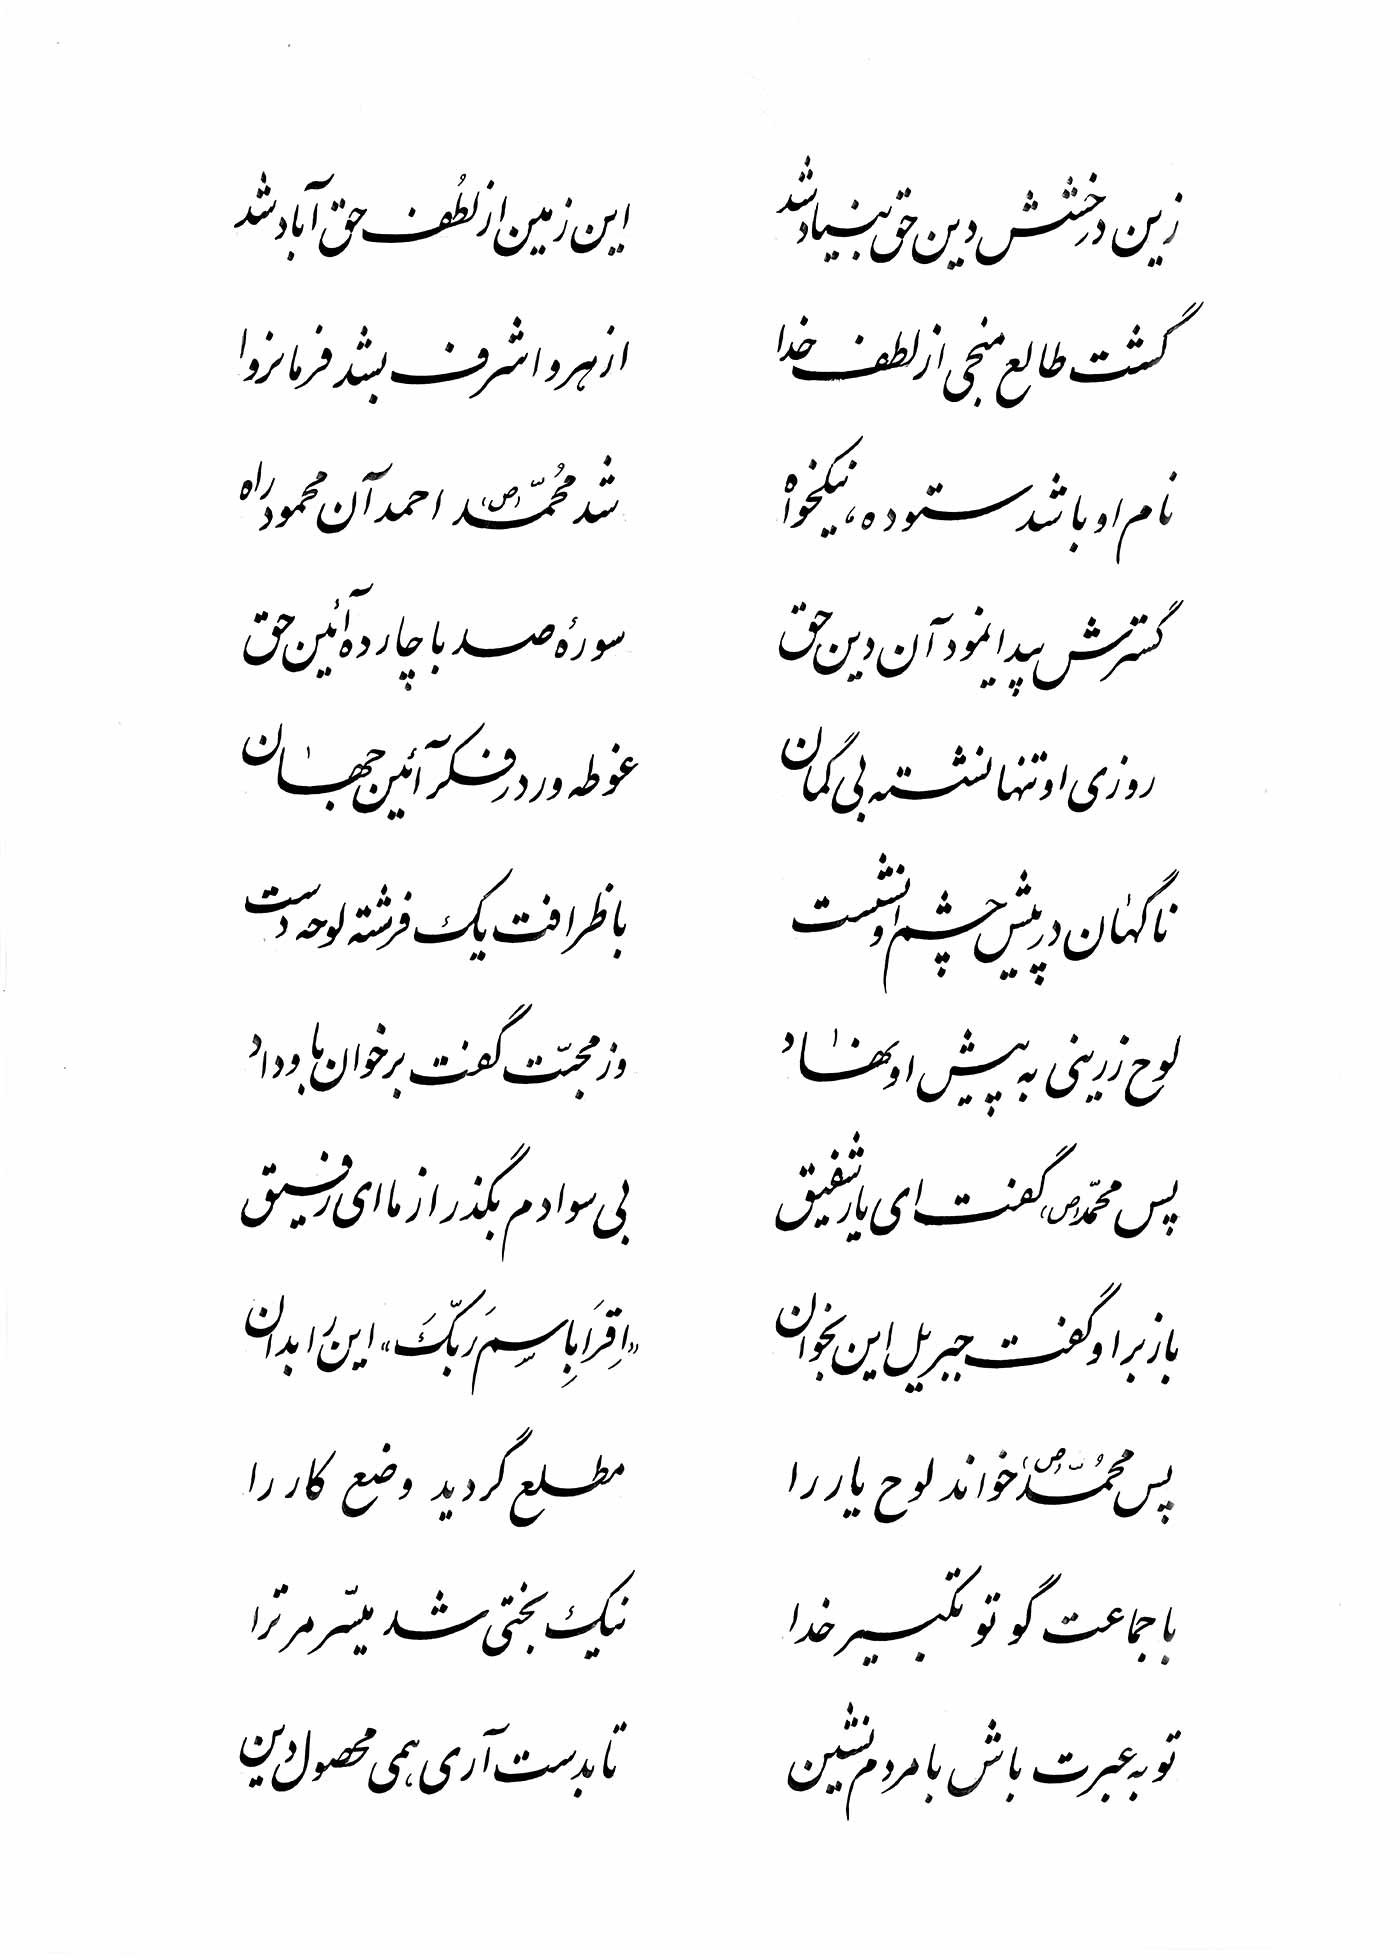 زین درخشش دین حق بنیاد شد این زمین از لطُف حق آباد شد
گشت طالع منجی از لطف خدا از هر و اشرف بشد فرمانروا
نام او باشد ستوده، نیکخواه شد مُحمّد (ص) احمد آن محمود راه
گسترش پیدا نمود آن دین حق سورهٔ صد با چارده آئین حق
روزی او تنها نشسته بی گمان غوطه ور در فکر آئین جهان
ناگهان در پیش چشم او نشست با ظرافت یک فرشته لوحه دست
لوح زرینی به پیش او نهاد وز محبّت گفت برخوان با وداد
پس محمّد (ص) گفت ای یار شفیق بی سوادم بگذر از ما ای رفیق
باز بر او گفت جبریل این بخوان «اِقرَا بِاسِم رَبّکَ» این را بدان
پس محمُّد (ص) خواند لوح یار را مطلع گردید وضع کار را
با جماعت گو تو تکبیر خدا نیک بختی شد میسّر مر ترا
تو به عبرت باش با مردم نشین تا بدست آری همی محصول دین